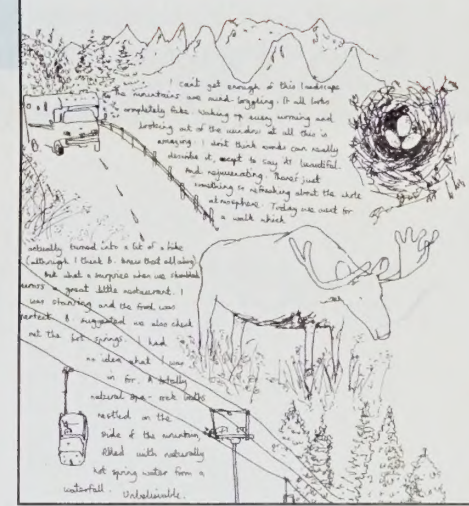 I can't get enough of this landscape
the mountains are mind-boggling. It all looks
completely fake. Waking up every morning and
looking out of the window at all this is
amazing. I don't think words can really
describe it, except to say its beautiful.
And rejuvenating. There's just
something so refreshing about the whole
atmosphere. Today we went for
a walk which
actually turned into a bit of a hike
(although I think B. knew that all along)
but what a surprise when we stumbled
across a great little restaurant. I
was starving and the food was
perfect. B suggested we also check
out the hot springs. I had
no idea what I was
in for. A totally
natural spa - rock baths
nestled on the
side of the mountain
filled with naturally
hot spring water from a
waterfall. Unbelievable.